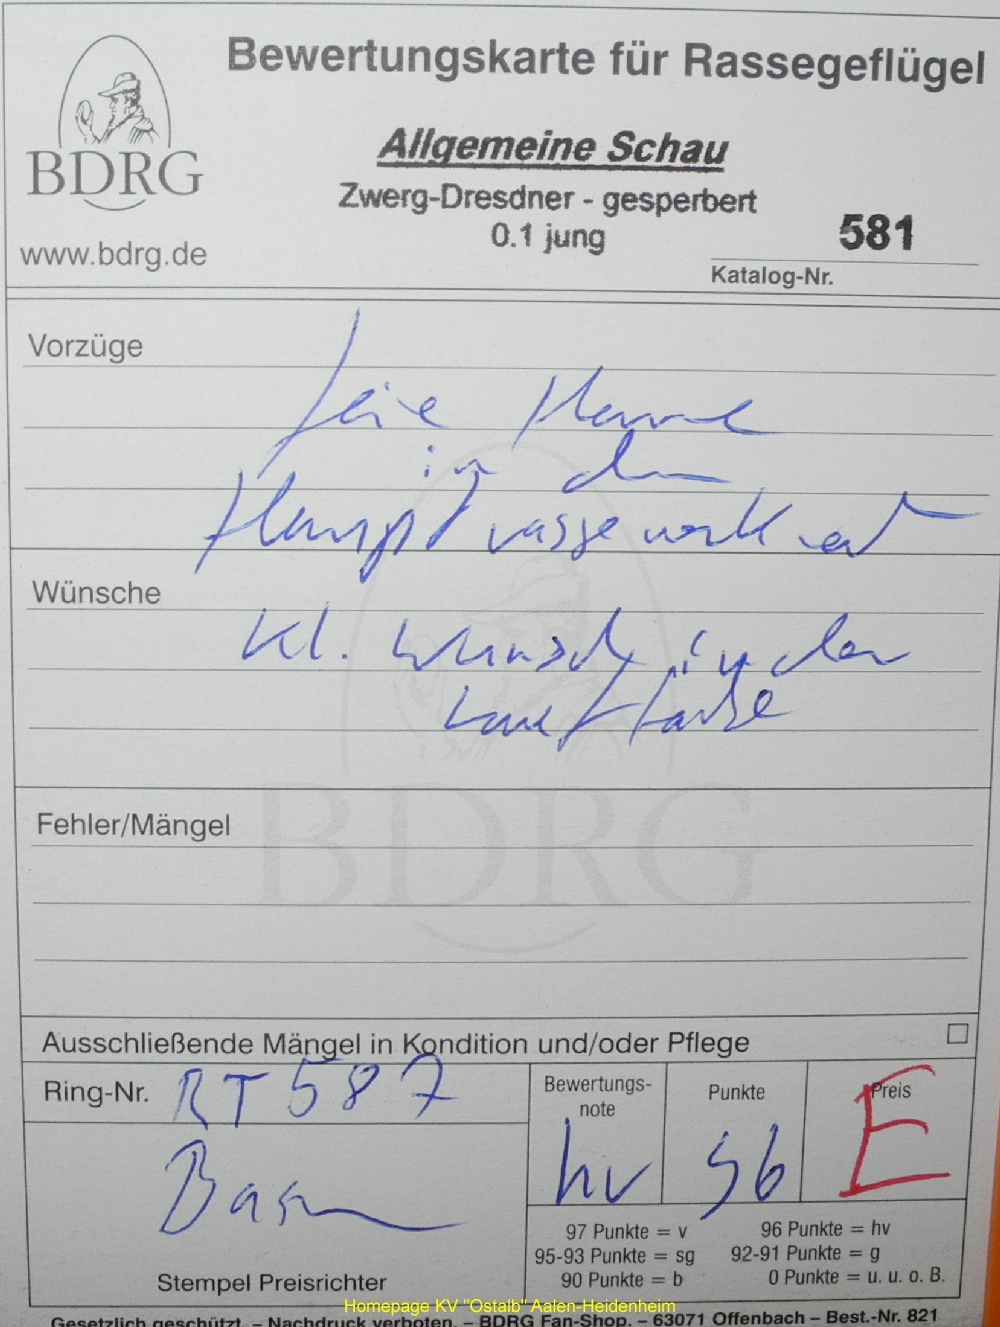 Bewertungskarte für Rassegeflügel
BDRG
www.bdrg.de
Allgemeine Schau
Zwerg-Dresdner - gesperbert
0.1 jung
581
Katalog-Nr.
Vorzüge
feine Henne
in den
Hauptrassemerkmalen
Wünsche
kl. Wunsch in der
Lauffarbe
BDRG
Fehler/Mängel
Ausschließende Mängel in Kondition und/oder Pflege
Ring-Nr. RT 587
Bewertungs-
note
hv
Punkte
96
Preis
E
Stempel Preisrichter
97 Punkte = v 96 Punkte = hv
95-93 Punkte = sg 92-91 Punkte = g
90 Punkte = b 0 Punkte = u. u. o. B.
Homepage KV "Ostalb" Aalen-Heidenheim
Gesetzlich geschützt. – Nachdruck verboten. – BDRG Fan-Shop. – 63071 Offenbach – Best.-Nr. 821